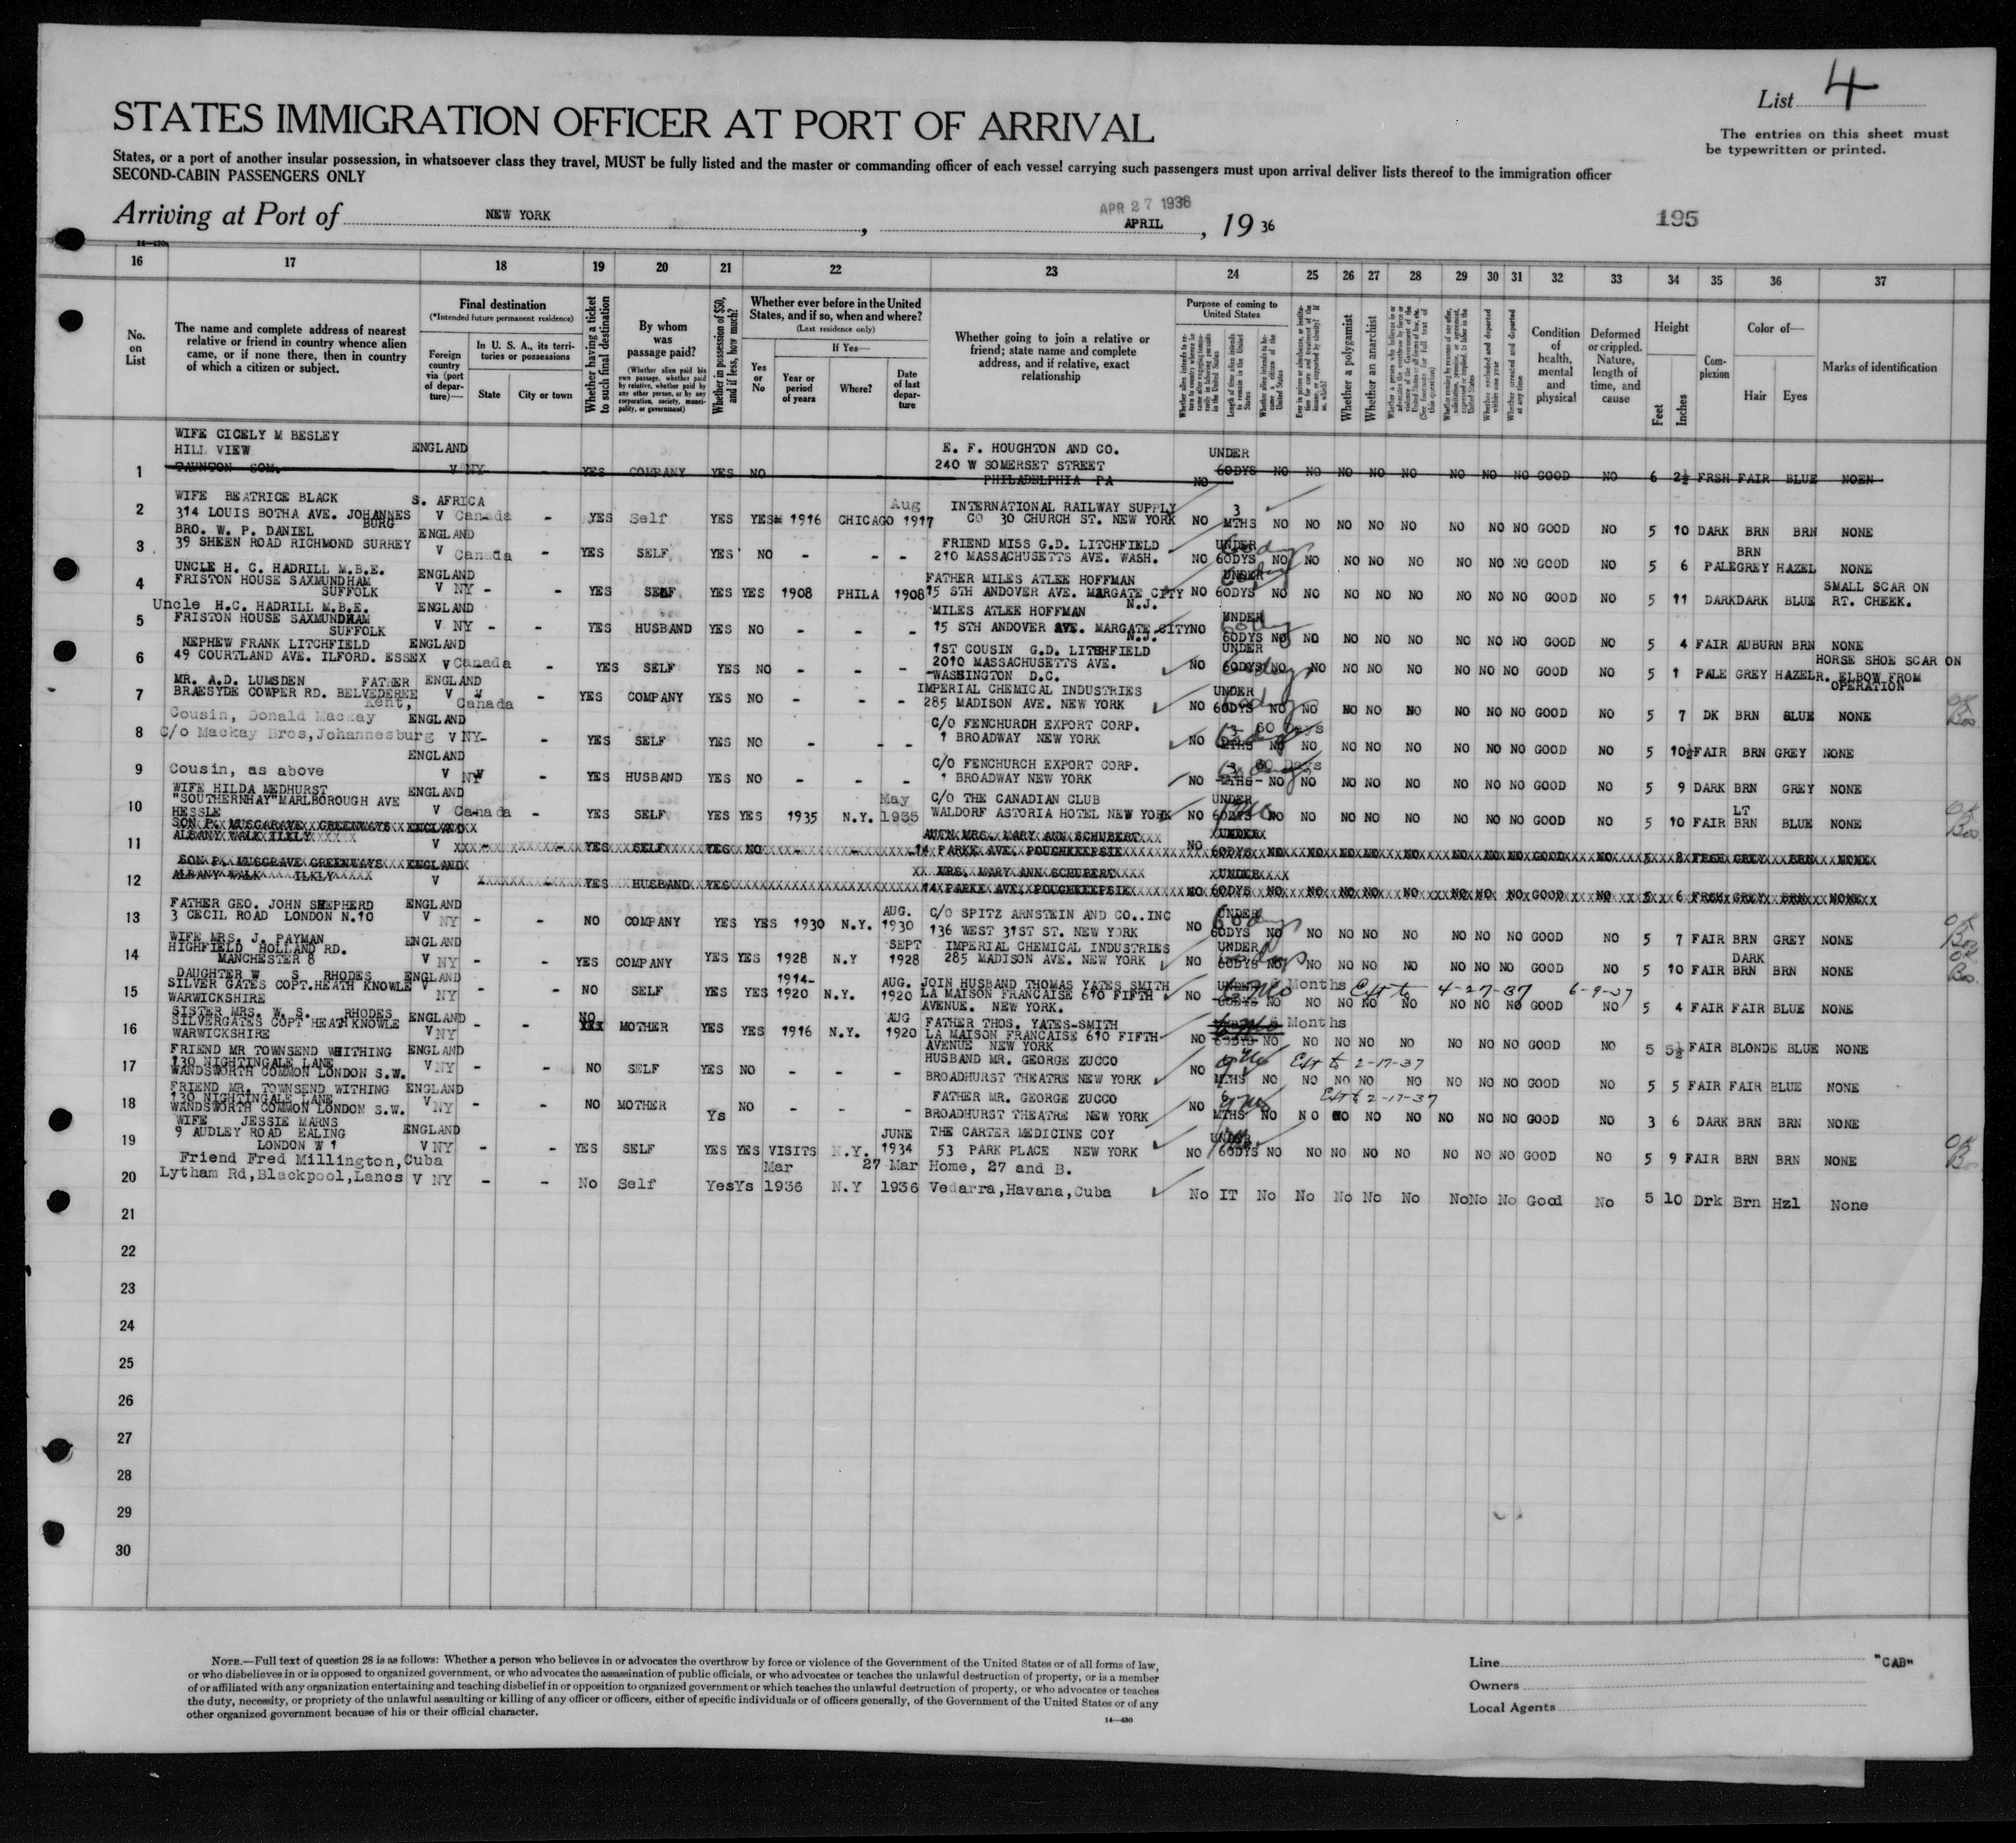 List 4
The entries on this sheet must
be typewritten or printed.
STATES IMMIGRATION OFFICER AT PORT OF ARRIVAL
States, or a port of another insular possession, in whatsoever class they travel, MUST be fully listed and the master or commanding officer of each vessel carrying such passengers must upon arrival deliver lists thereof to the immigration officer
SECOND-CABIN PASSENGERS ONLY
APR 27 1936
Arriving at Port of NEW YORK, APRIL, 19 36
195
14—430
16 17 18 19 20 21 22 23 24 25 26 27 28 29 30 31 32 33 34 35 36 37
No. on List
The name and complete address of nearest relative or friend in country whence alien came, or if none there, then in country of which a citizen or subject.
Final destination
(*Intended future permanent residence)
Foreign country via (port of departure)—
In U. S. A., its territories or possessions
State
City or town
Whether having a ticket to such final destination
By whom was passage paid?
(Whether alien paid his own passage, whether paid by relative, whether paid by any other person, or by any corporation, society, municipality, or government)
Whether in possession of $50, and if less, how much?
Whether ever before in the United States, and if so, when and where?
(Last residence only)
Yes or No
If Yes—
Year or period of years
Where?
Date of last departure
Whether going to join a relative or friend; state name and complete address, and if relative, exact relationship
Purpose of coming to United States
Whether a polygamist
Whether an anarchist
Condition of health, mental and physical
Deformed or crippled. Nature, length of time, and cause
Height
Feet
Inches
Complexion
Color of—
Hair
Eyes
Marks of identification
WIFE CICELY M BESLEY
HILL VIEW ENGLAND E. F. HOUGHTON AND CO. UNDER
1 TAUNTON SOM. V NY - YES COMPANY YES NO 240 W SOMERSET STREET PHILADELPHIA PA NO 60DYS NO NO NO NO NO NO NO NO GOOD NO 6 2½ FRSH FAIR BLUE NOEN
WIFE BEATRICE BLACK S. AFRICA Aug INTERNATIONAL RAILWAY SUPPLY 3
2 314 LOUIS BOTHA AVE. JOHANNESBURG V Canada - YES Self YES YES 1916 CHICAGO 1917 CO 30 CHURCH ST. NEW YORK NO MTHS NO NO NO NO NO NO NO NO GOOD NO 5 10 DARK BRN BRN NONE
BRO. W. P. DANIEL ENGLAND FRIEND MISS G.D. LITCHFIELD UNDER BRN
3 39 SHEEN ROAD RICHMOND SURREY V Canada - YES SELF YES NO - - - 210 MASSACHUSETTS AVE. WASH. NO 60DYS NO NO NO NO NO NO NO NO GOOD NO 5 6 PALE GREY HAZEL NONE
UNCLE H. C. HADRILL M.B.E. ENGLAND FATHER MILES ATLEE HOFFMAN UNDER SMALL SCAR ON
4 FRISTON HOUSE SAXMUNDHAM SUFFOLK V NY - - YES SELF YES YES 1908 PHILA 1908 15 STH ANDOVER AVE. MARGATE CITY N.J. NO 60DYS NO NO NO NO NO NO NO NO GOOD NO 5 11 DARK DARK BLUE RT. CHEEK.
Uncle H.C. HADRILL M.B.E. ENGLAND MILES ATLEE HOFFMAN UNDER
5 FRISTON HOUSE SAXMUNDHAM SUFFOLK V NY - - YES HUSBAND YES NO - - - 15 STH ANDOVER AVE. MARGATE CITY N.J. NO 60DYS NO NO NO NO NO NO NO NO GOOD NO 5 4 FAIR AUBURN BRN NONE
NEPHEW FRANK LITCHFIELD ENGLAND 1ST COUSIN G.D. LITCHFIELD UNDER
6 49 COURTLAND AVE. ILFORD. ESSEX V Canada - YES SELF YES NO - - - 2010 MASSACHUSETTS AVE. WASHINGTON D.C. NO 60DYS NO NO NO NO NO NO NO NO GOOD NO 5 1 PALE GREY HAZEL HORSE SHOE SCAR ON R. ELBOW FROM OPERATION
MR. A.D. LUMSDEN FATHER ENGLAND IMPERIAL CHEMICAL INDUSTRIES UNDER
7 BRAESYDE COWPER RD. BELVEDEREE Kent, V Canada - YES COMPANY YES NO - - - 285 MADISON AVE. NEW YORK NO 60DYS NO NO NO NO NO NO NO NO GOOD NO 5 7 DK BRN BLUE NONE
Cousin, Donald Mackay ENGLAND C/O FENCHURCH EXPORT CORP. 3 60 Days
8 C/o Mackay Bros, Johannesburg V NY- - YES SELF YES NO - - - 1 BROADWAY NEW YORK NO MTHS NO NO NO NO NO NO NO NO GOOD NO 5 10½ FAIR BRN GREY NONE
ENGLAND C/O FENCHURCH EXPORT CORP. 3 60 Days
9 Cousin, as above V NY - YES HUSBAND YES NO - - - 1 BROADWAY NEW YORK NO MTHS NO NO NO NO NO NO NO NO GOOD NO 5 9 DARK BRN GREY NONE
WIFE HILDA MEDHURST ENGLAND May C/O THE CANADIAN CLUB UNDER LT
10 "SOUTHERNHAY" MARLBOROUGH AVE HESSLE V Canada - YES SELF YES YES 1935 N.Y. 1935 WALDORF ASTORIA HOTEL NEW YORK NO 60DYS NO NO NO NO NO NO NO NO GOOD NO 5 10 FAIR BRN BLUE NONE
SON P. MUSGRAVE GREENWAYS ENGLAND AUNN MRS. MARY ANN SCHUBERT UNDER
11 ALBANY WALK ILKLY V - - YES SELF YES NO - - 14 PARKE AVE. POUGHKEEPSIE NO 60DYS NO NO NO NO NO NO NO NO GOOD NO 5 8 FRSH GREY BRN NONE
SON P. MUSGRAVE GREENWAYS ENGLAND MRS. MARY ANN SCHUBERT UNDER
12 ALBANY WALK ILKLY V - YES HUSBAND YES 14 PARKE AVE. POUGHKEEPSIE NO 60DYS NO NO NO NO NO NO NO NO GOOD NO 5 6 FRSH GREY BRN NONE
FATHER GEO. JOHN SHEPHERD ENGLAND AUG. C/O SPITZ ARNSTEIN AND CO., INC UNDER
13 3 CECIL ROAD LONDON N.10 V NY - - NO COMPANY YES YES 1930 N.Y. 1930 136 WEST 31ST ST. NEW YORK NO 60DYS NO NO NO NO NO NO NO NO GOOD NO 5 7 FAIR BRN GREY NONE
WIFE MRS. J. PAYMAN ENGLAND SEPT IMPERIAL CHEMICAL INDUSTRIES UNDER DARK
14 HIGHFIELD HOLLAND RD. MANCHESTER 8 V NY - - YES COMPANY YES YES 1928 N.Y 1928 285 MADISON AVE. NEW YORK NO 60DYS NO NO NO NO NO NO NO NO GOOD NO 5 10 FAIR BRN BRN NONE
DAUGHTER W S RHODES ENGLAND 1914- AUG. JOIN HUSBAND THOMAS YATES SMITH Months Ext to 4-27-37 6-9-37
15 SILVER GATES COPT. HEATH KNOWLE WARWICKSHIRE V NY - - NO SELF YES YES 1920 N.Y. 1920 LA MAISON FRANCAISE 610 FIFTH AVENUE. NEW YORK. NO 60DYS NO NO NO NO NO NO NO NO GOOD NO 5 4 FAIR FAIR BLUE NONE
SISTER MRS. W. S. RHODES ENGLAND NO AUG FATHER THOS. YATES-SMITH Months
16 SILVERGATES COPT HEATH KNOWLE WARWICKSHIRE V NY - - XXX MOTHER YES YES 1916 N.Y. 1920 LA MAISON FRANCAISE 610 FIFTH AVENUE NEW YORK NO 60DYS NO NO NO NO NO NO NO NO GOOD NO 5 5½ FAIR BLONDE BLUE NONE
FRIEND MR TOWNSEND WHITHING ENGLAND HUSBAND MR. GEORGE ZUCCO Ext to 2-17-37
17 130 NIGHTINGALE LANE WANDSWORTH COMMON LONDON S.W. V NY - - NO SELF YES NO - - - BROADHURST THEATRE NEW YORK NO MTHS NO NO NO NO NO NO NO NO GOOD NO 5 5 FAIR FAIR BLUE NONE
FRIEND MR. TOWNSEND WITHING ENGLAND FATHER MR. GEORGE ZUCCO Ext to 2-17-37
18 130 NIGHTINGALE LANE WANDSWORTH COMMON LONDON S.W. V NY - - NO MOTHER Ys NO - - - BROADHURST THEATRE NEW YORK NO MTHS NO NO NO NO NO NO NO NO GOOD NO 3 6 DARK BRN BRN NONE
WIFE JESSIE MARNS ENGLAND JUNE THE CARTER MEDICINE COY UNDER
19 9 AUDLEY ROAD EALING LONDON W 1 V NY - - YES SELF YES YES VISITS N.Y. 1934 53 PARK PLACE NEW YORK NO 60DYS NO NO NO NO NO NO NO NO GOOD NO 5 9 FAIR BRN BRN NONE
Friend Fred Millington, Cuba Mar 27 Mar Home, 27 and B.
20 Lytham Rd, Blackpool, Lancs V NY - - No Self Yes Ys 1936 N.Y 1936 Vedarra, Havana, Cuba No IT No No No No No No No No Good No 5 10 Drk Brn Hzl None
21
22
23
24
25
26
27
28
29
30
NOTE.—Full text of question 28 is as follows: Whether a person who believes in or advocates the overthrow by force or violence of the Government of the United States or of all forms of law,
or who disbelieves in or is opposed to organized government, or who advocates the assassination of public officials, or who advocates or teaches the unlawful destruction of property, or is a member
of or affiliated with any organization entertaining and teaching disbelief in or opposition to organized government or which teaches the unlawful destruction of property, or who advocates or teaches
the duty, necessity, or propriety of the unlawful assaulting or killing of any officer or officers, either of specific individuals or of officers generally, of the Government of the United States or of any
other organized government because of his or their official character.
14—430
Line
Owners
Local Agents
"CAB"